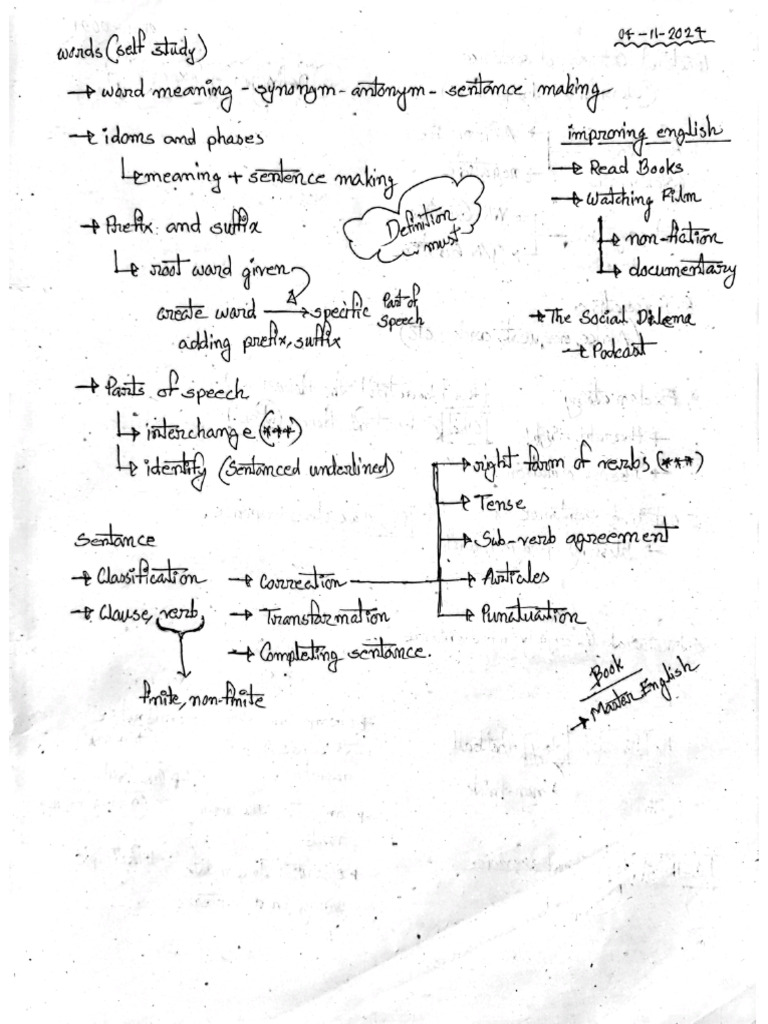 04-11-2024
words (self study)
→ word meaning - synonym - antonym - sentance making
→ idoms and phases
↳ meaning + sentence making
→ Prefix and suffix
↳ root word given
create word → specific Part of Speech
adding prefix, suffix
Definition must
→ Parts of speech
↳ interchange (***)
↳ identify (sentanced underlined)
improving english
→ Read Books
→ Watching Film
→ non-fiction
→ documentary
→ The Social Dilema
→ Podcast
Sentance
→ Classification
→ Clause, verb
finite, non-finite
→ Correction
→ Transformation
→ Completing sentance.
→ right form of verbs (***)
→ Tense
→ Sub-verb agreement
→ Articles
→ Punctuation
Book
→ Master English